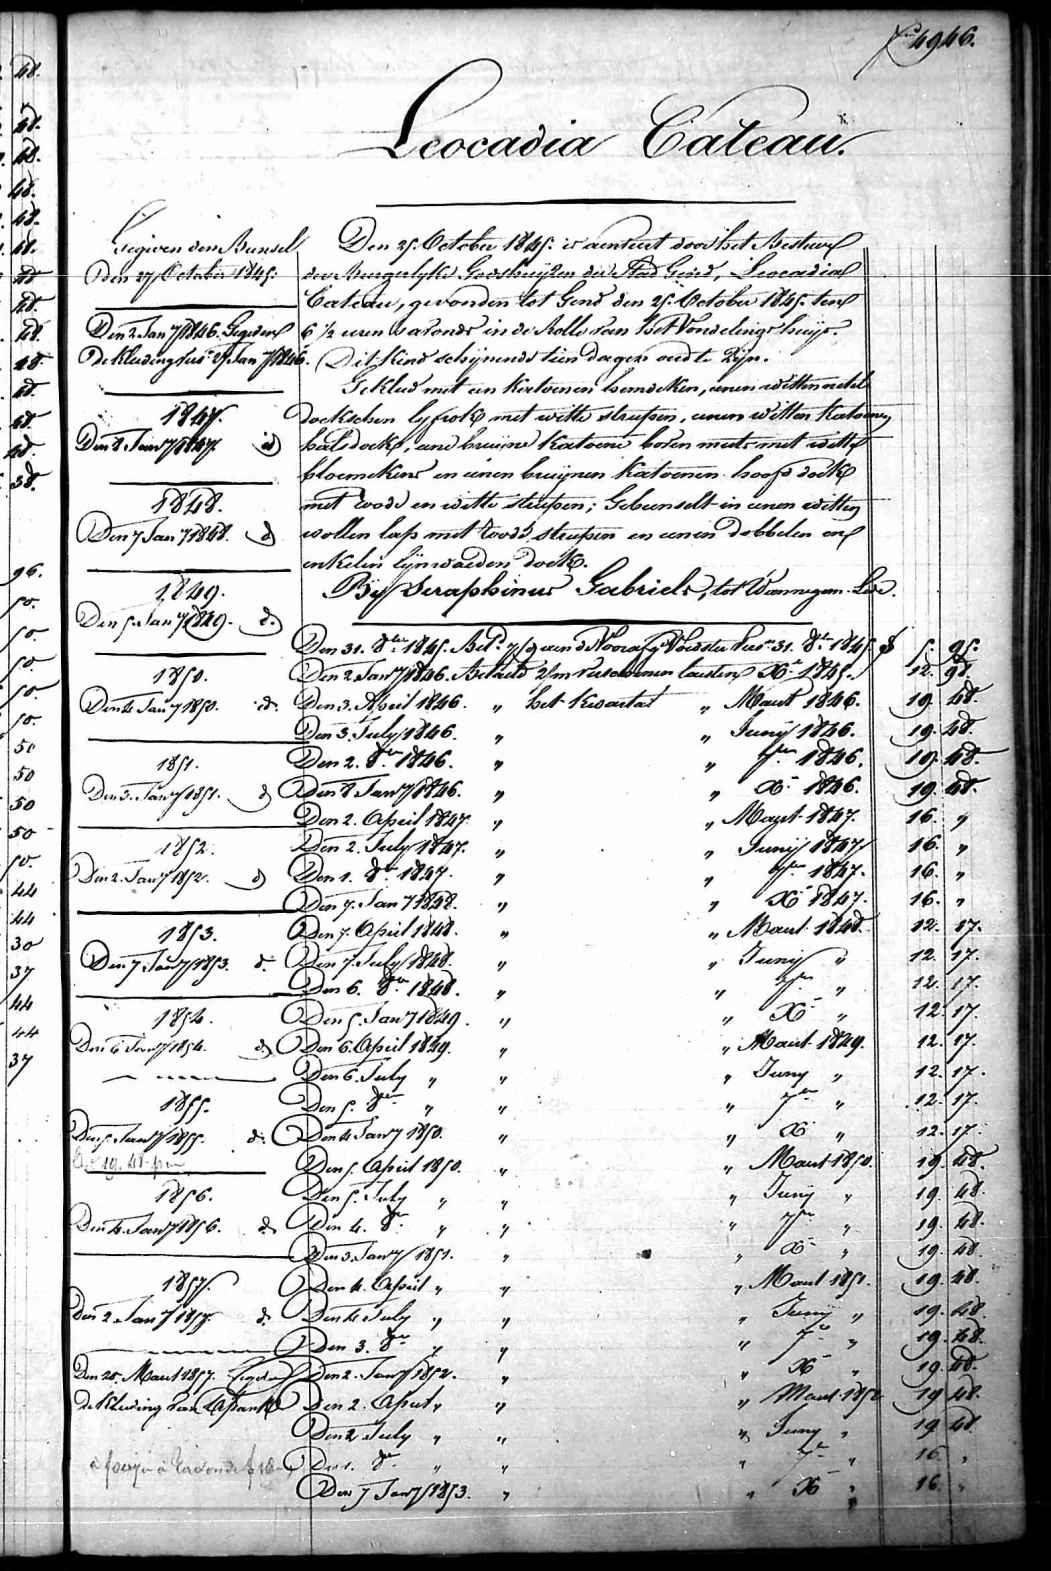 4946.
Leocadia Cateau.
Gegeven den Bunsel
Den 27 October 1845.
Den 2 Jany 1846. Gegeven
De kleeding
1847.
Den 8 Jany 1847. id
1848.
Den 7 Jany 1848. d
1849.
Den 5. Jany 1849. d.
1850.
Den 4 Jany 1850. id.
1851.
Den 3. Jany 1851. d
1852.
Den 2. Jany 1852. d
1853.
Den 7 Jany 1853. d.
1854.
Den 6 Jany 1854. d
1855.
Den 5 Jany 1855. d.
1856.
Den 4. Jany 1856. d
1857.
Den 2 Jany 1857. d.
Den 25. Maert 1857. Gegeven
de kleeding van
Den 25. October 1845. is aenveert door het Bestuer
der Burgerlyke Godshuyzen der Stad Gend, Leocadia
Cateau, gevonden tot Gend den 25. October 1845. ten
6 1/2 uren 's avonds in de Rolle van het Vondelings huys.
Dit kind schynende tien dagen oud te zyn.
Gekleed met een katoenen hemdeken, eenen witten netel
doekschen lyfrok met witte streepen, eenen witten katoenen
halsdoek, eene bruyne katoene boven muts met witte
bloemekens en eenen bruynen katoenen hoofd doek
met roode en witte streepen; Gebunselt in eenen witten
wollen lap met roode streepen en eenen dobbelen en
enkelen lynwaeden doek.
By Seraphinus Gabriels, tot Wannegem-Lede.
Den 31. 8ber 1845. 31. 8ber 1845. 5. 95.
Den 2 Jany 1846. Betaeld 2/m verschenen laesten Xber 1845. 12. 98.
Den 3. April 1846. " het kwartael " Maert 1846. 19. 48.
Den 3. July 1846. " " Juny 1846. 19. 48.
Den 2. 8ber 1846. " " 7ber 1846. 19. 48.
Den 8 Jany 1846. " " Xber 1846. 19. 48.
Den 2. April 1847. " " Maert 1847. 16. "
Den 2. July 1847. " " Juny 1847. 16. "
Den 1. 8ber 1847. " " 7ber 1847. 16. "
Den 7. Jany 1848. " " Xber 1847. 16. "
Den 7. April 1848. " " Maert 1848. 12. 17.
Den 7. July 1848. " " Juny " 12. 17.
Den 6. 8ber 1848. " " 7ber " 12. 17.
Den 5. Jany 1849. " " Xber " 12. 17.
Den 6. April 1849. " " Maert 1849. 12. 17.
Den 6. July " " " Juny " 12. 17.
Den 5. 8ber " " " 7ber " 12. 17.
Den 4 Jany 1850. " " Xber " 12. 17.
Den 5. April 1850. " " Maert 1850. 19. 48.
Den 5. July " " " Juny " 19. 48.
Den 4. 8ber " " " 7ber " 19. 48.
Den 3. Jany 1851. " " Xber " 19. 48.
Den 4. April " " " Maert 1851. 19. 48.
Den 4 July " " " Juny " 19. 48.
Den 3. 8ber " " " 7ber " 19. 48.
Den 2. Jany 1852. " " Xber " 19. 48.
Den 2. April " " " Maert 1852 19 48.
Den 2 July " " " Juny " 19 48
Den 1. 8ber " " " 7ber " 16. "
Den 7 Jany 1853. " " Xber " 16. "